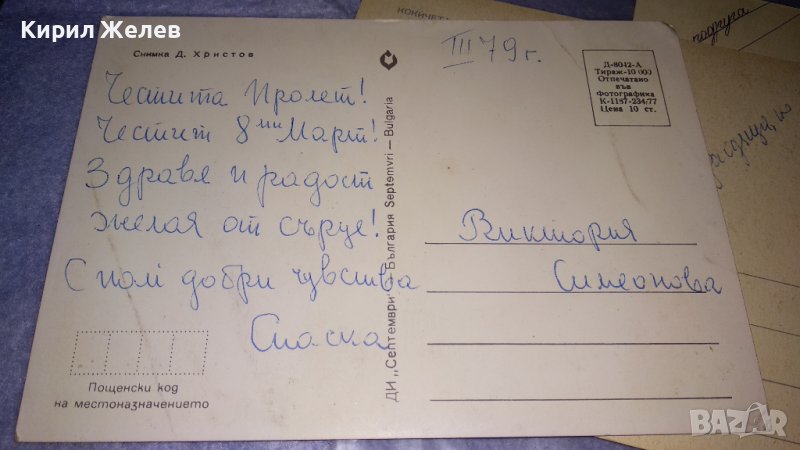 Кирил Желев
Снимка Д. Христов
III 79 г.
Д-8042-А
Тираж-10 000
Отпечатано
във
Фотографика
К-1187-234/77
Цена 10 ст.
Честита Пролет!
Честит 8ми Март!
Здраве и радост
желая от сърце!
С най добри чувства
Спаска
Виктория
Симеонова
Пощенски код
на местоназначението
ДИ „Септември" България Septemvri — Bulgaria
подруга
BAZAR